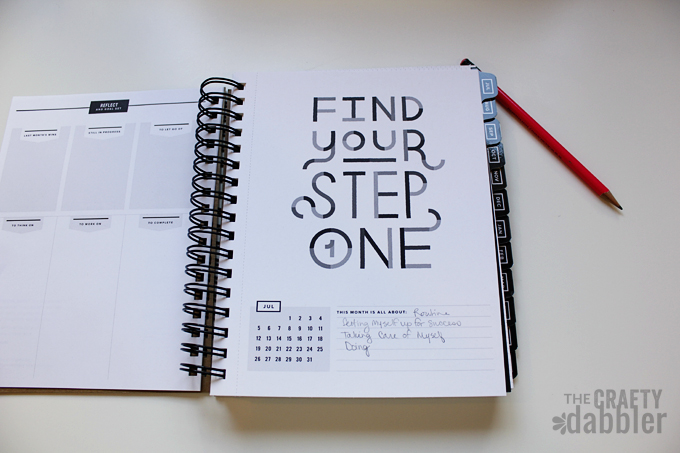 REFLECT
AND GOAL SET
LAST MONTH'S WINS
STILL IN PROGRESS
TO LET GO OF
TO THINK ON
TO WORK ON
TO COMPLETE
FIND
YOUR
STEP
ONE
1
JUL
1 2 3 4
5 6 7 8 9 10 11
12 13 14 15 16 17 18
19 20 21 22 23 24 25
26 27 28 29 30 31
THIS MONTH IS ALL ABOUT: Routine
Setting Myself up for Success
Taking Care of Myself
Doing
SEP
OCT
NOV
DEC
JAN
THE CRAFTY
dabbler